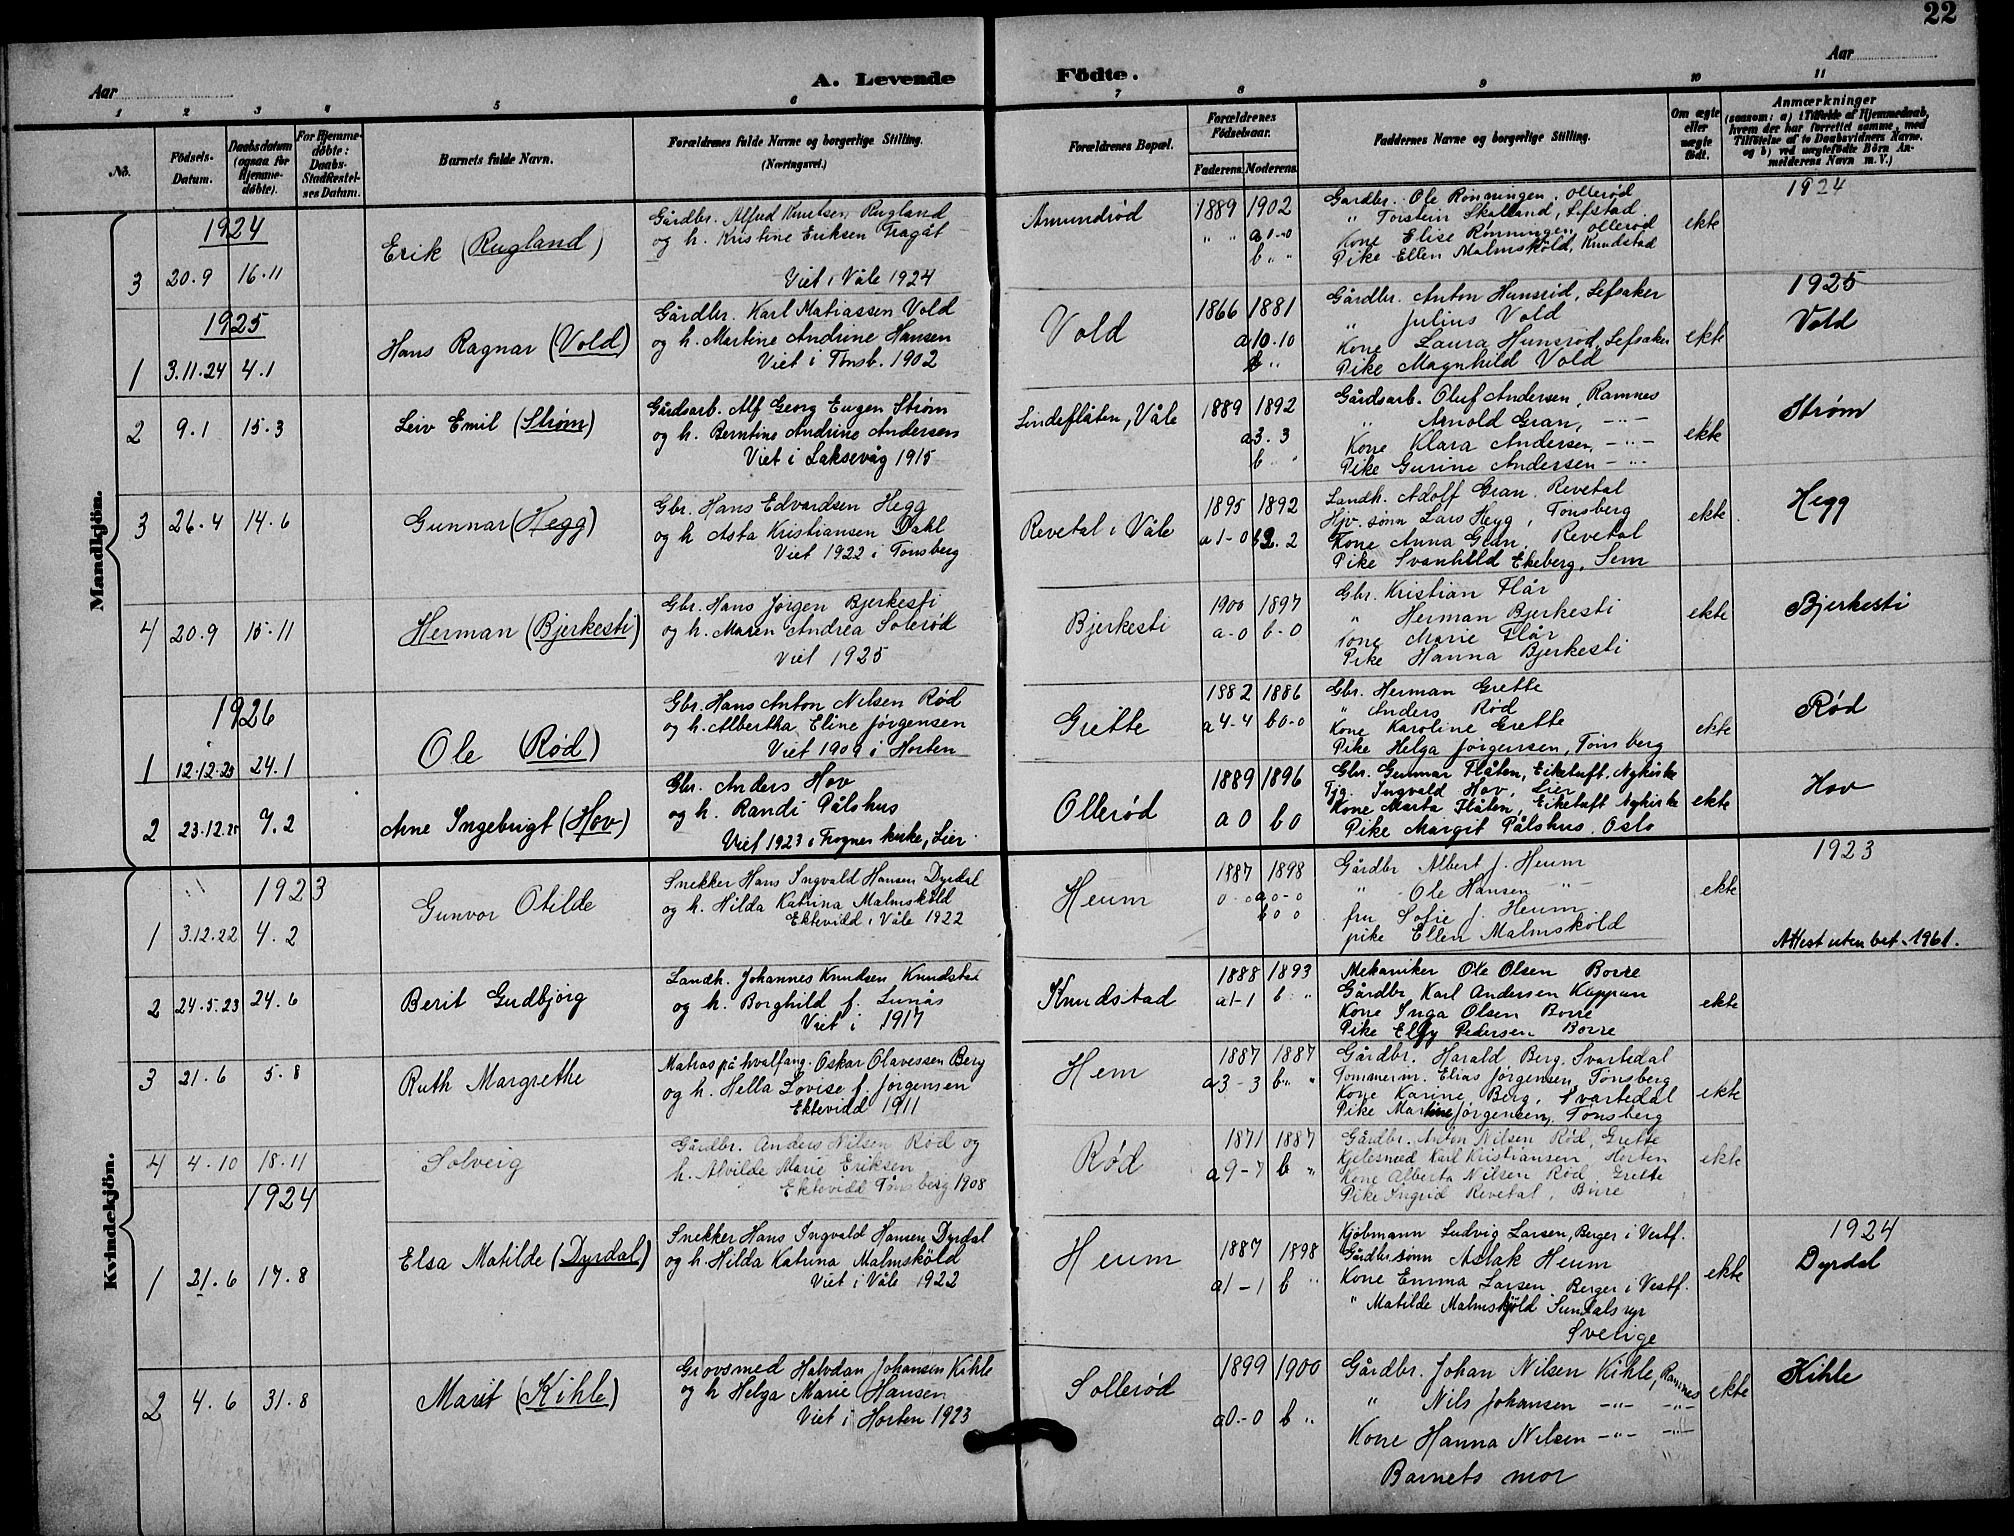 22
Aar
A. Levende
Födte.
Aar
1 2 3 4 5 6 7 8 9 10 11
No.
Födsels-Datum.
Daabsdatum (ogsaa for Hjemmedøbte).
For Hjemmedöbte: Daabs-Stadfæstelses Datum.
Barnets fulde Navn.
Forældrenes fulde Navne og borgerlige Stilling.
(Næringsvei.)
Forældrenes Bopæl.
Forældrenes Födselsaar.
Faderens. Moderens.
Faddernes Navne og borgerlige Stilling.
Om ægte eller uægte födt.
Anmærkninger
(saasom: a) i Tilfælde af Hjemmedaab, hvem der har forrettet samme, med Tilföielse af to Daabsvidners Navne, og b) ved uægtefödte Börn Anmelderens Navn m. V.)
Mandkjön.
1924
3 20.9 16.11
Erik (Rugland)
Gårdbr. Alfred Knutsen Rugland
og h. Kristine Eriksen Fragåt
Viet i Våle 1924
Amundrød
1889 1902
" " a 0-0
b " "
Gardbr. Ole Rønningen, Ollerød
" Torstein Skalland, Lefstad
Kone Elise Rønningen, Ollerød
Pike Ellen Malmsköld, Knudstad
ekte
1924
1925
1 3.11.24 4.1
Hans Ragnar (Vold)
Gårdbr. Karl Matiassen Vold
og h. Martine Andrine Hansen
Viet i Tønsb. 1902
Vold
1866 1881
a 10-10
b " "
Gårdbr. Anton Hunsrød, Lefsaker
" Julius Vold
Kone Laura Hunsrød, Lefsaker
Pike Magnhild Vold
ekte
1925
Vold
2 9.1 15.3
Leiv Emil (Strøm)
Gårdsarb. Alf Georg Eugen Strøm
og h. Berntine Andrine Andersen
Viet i Laksevåg 1915
Lindeflåten, Våle
1889 1892
a 3. 3
b " "
Gårdsarb. Oluf Andersen, Ramnes
" Arnold Gran, -"-
Kone Klara Andersen, -"-
Pike Gurine Andersen -"-
ekte
Strøm
3 26.4 14.6
Gunnar (Hegg)
Gbr. Hans Edvardsen Hegg
og h Asta Kristiansen Dahl
Viet 1922 i Tønsberg
Revetal i Våle
1895 1892
a 1-0 b 2. 2
Landh. Adolf Gran, Revetal
Hjv. sønn Lars Hegg, Tønsberg
Kone Anna Gran, Revetal
Pike Svanhild Ekeberg, Sem
ekte
Hegg
4 20.9 15.11
Herman (Bjerkesti)
Gbr. Hans Jørgen Bjerkesti
og h. Maren Andrea Solerød
Viet 1925
Bjerkesti
1900 1897
a-0 b-0
Gbr. Kristian Flår
" Herman Bjerkesti
Kone Marie Flår
Pike Hanna Bjerkesti
ekte
Bjerkesti
1926
1 12.12.25 24.1
Ole (Rød)
Gbr. Hans Anton Nilsen Rød
og h. Albertha Eline Jørgensen
Viet 1909 i Horten
Grette
1882 1886
a 4-4 b 0-0
Gbr. Herman Grette
" Anders Rød
Kone Karoline Grette
Pike Helga Jørgensen, Tønsberg
ekte
Rød
2 23.12.25 7.2
Arne Ingebrigt (Hov)
Gbr. Anders Hov
og h. Randi Pålshus
Viet 1923 i Frogner kirke, Lier
Ollerød
1889 1896
a 0 b 0
Gbr. Gunnar Flåten, Eiketuft. Nykirke
Tjg. Ingvald Hov, Lier
Kone Marta Flåten, Eiketuft Nykirke
Pike Margit Pålshus. Oslo
ekte
Hov
Kvindekjön.
1923
1 3.12.22 4.2
Gunvor Otilde
Snekker Hans Ingvald Hansen Dyrdal
og h. Hilda Katrina Malmsköld
Ektevidd i Våle 1922
Heum
1887 1898
0-0 a 0-0
b 0 0
Gårdbr Albert J. Heum
" Ole Hansen -"-
fru Sofie J. Heum
pike Ellen Malmsköld
ekte
1923
Attest uten bet. 1961.
2 24.5.23 24.6
Berit Gudbjørg
Landh. Johannes Knudsen Knudstad
og h. Borghild f. Lunås
Viet i 1917
Knudstad
1888 1893
a 1-1 b " "
Mekaniker Ole Olsen Borre
Gårdbr Karl Andersen Koppan
Kone Inga Olsen Borre
Pike Elly Pedersen Borre
ekte
3 21.6 5.8
Ruth Margrethe
Matros på hvalfang. Oskar Olavessen Berg
og h. Hella Lovise f. Jørgensen
Ektevidd 1911
Hem
1887 1887
a 3-3 b " "
Gårdbr. Harald Berg, Svartedal
Tømmerm. Elias Jørgensen, Tønsberg
Kone Karine Berg, Svartedal
Pike Martine Jørgensen, Tønsberg
ekte
4 4.10 18.11
Solveig
Gårdbr. Anders Nilsen Rød og
h. Alvilde Marie Eriksen
Ektevidd Tønsberg 1908
Rød
1871 1887
a 9-7 b "
Gårdbr. Anton Nilsen Rød, Grette
Kjelesmed Karl Kristiansen Horten
Kone Alberta Nilsen Rød, Grette
Pike Ingrid Revetal, Borre
ekte
1924
1 21.6 17.8
Elsa Matilde (Dyrdal)
Snekker Hans Ingvald Hansen Dyrdal
og h. Hilda Katrina Malmsköld
Viet i Våle 1922
Heum
1887 1898
a 1-1 b "
Kjöbmann Ludvig Larsen, Berger i Vestf.
Gårdbr.sönn Aslak Heum
Kone Emma Larsen Berger i Vestf.
" Matilde Malmsköld Sundals ryr
Sverige
ekte
1924
Dyrdal
2 4.6 31.8
Marit (Kihle)
Grovsmed Halvdan Johansen Kihle
og h Helga Marie Hansen
Viet i Horten 1923
Sollerød
1899 1900
a 0-0 b "
Gårdbr. Johan Nilsen Kihle, Ramnes
" Nils Johansen -"- -"-
Kone Hanna Nilsen -"- -"-
Barnets mor
ekte
Kihle